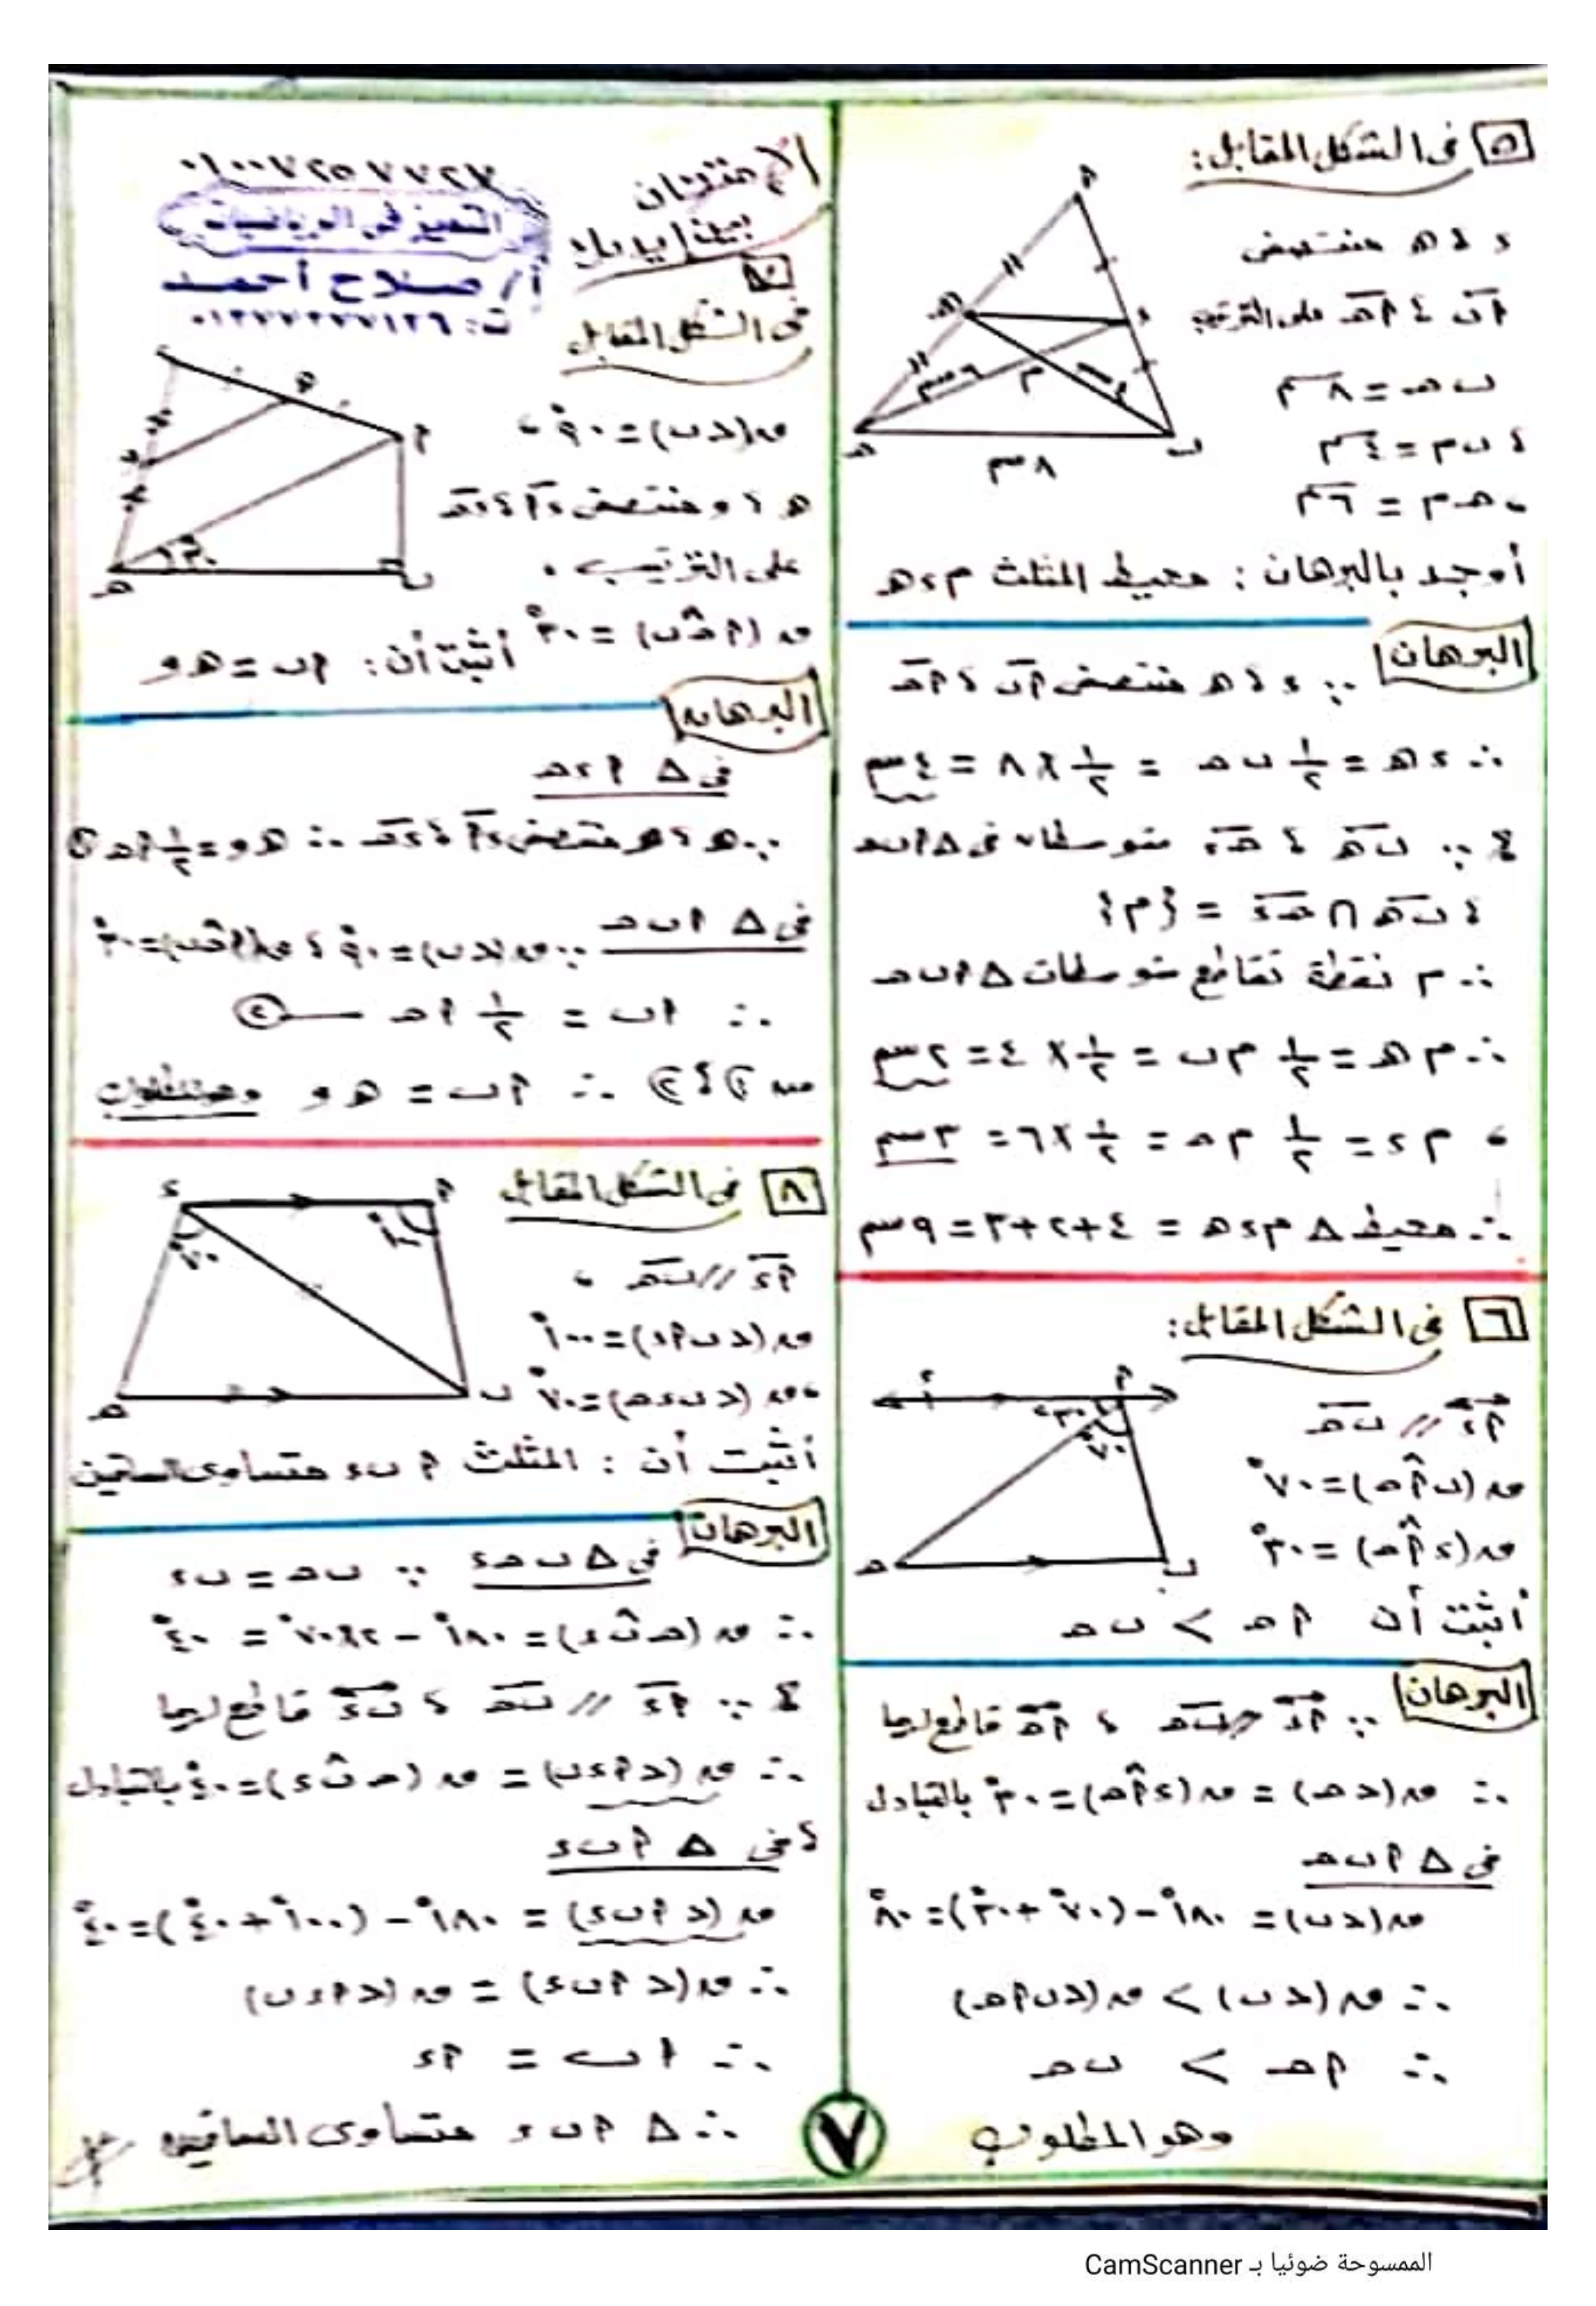 ٥ فى الشكل المقابل:
د ، هـ منتصفى
أب ، أحـ على الترتيب
ب حـ = ٨ سم
، ب م = ٤ سم
، حـ م = ٦ سم
٨ سم
أوجد بالبرهان : محيط المثلث م د هـ
البرهان
∵ د ، هـ منتصفى أب ، أحـ
∴ د هـ = ١/٢ ب حـ = ١/٢ × ٨ = ٤ سم
، ∵ ب هـ ، حـ د متوسطان فى Δ أ ب حـ
، ب هـ ∩ حـ د = {م}
∴ م نقطة تقاطع متوسطات Δ أ ب حـ
∴ م هـ = ١/٢ م ب = ١/٢ × ٤ = ٢ سم
، م د = ١/٢ م حـ = ١/٢ × ٦ = ٣ سم
∴ محيط Δ م د هـ = ٤ + ٢ + ٣ = ٩ سم
٦ فى الشكل المقابل:
أ د // ب حـ
ق (ب أ حـ) = ٧٠°
ق (د أ حـ) = ٣٠°
أثبت أن أ حـ > ب حـ
البرهان
∵ أ د // ب حـ ، أ حـ قاطع لهما
∴ ق (∠حـ) = ق (د أ حـ) = ٣٠° بالتبادل
فى Δ أ ب حـ
ق (∠ب) = ١٨٠° − (٧٠° + ٣٠°) = ٨٠°
∴ ق (∠ب) > ق (∠ب أ حـ)
∴ أ حـ > ب حـ
وهو المطلوب
الإمتحان
بين إيديك
٠١٠٠٧٢٥٧٧٢٧
التميز فى الرياضيات
أ/ صلاح أحمد
ت: ٠١٢٧٧٣٢٧١٢٦
فى الشكل المقابل
ق (∠ب) = ٩٠° ،
هـ ، و منتصفى أ د ، د حـ
على الترتيب ،
ق (أ حـ ب) = ٣٠° أثبت أن : أ ب = هـ و
البرهان
فى Δ أ د حـ
∵ هـ ، و منتصفى أ د ، د حـ ∴ هـ و = ١/٢ أ حـ ①
فى Δ أ ب حـ ∵ ق (∠ب) = ٩٠° ، ق (أ حـ ب) = ٣٠°
∴ أ ب = ١/٢ أ حـ — ②
من ① ، ② ∴ أ ب = هـ و وهو المطلوب
٨ فى الشكل المقابل
أ د // ب حـ ،
ق (∠ب أ د) = ١٠٠°
، ق (∠ب د حـ) = ٧٠°
أثبت أن : المثلث أ ب د متساوى الساقين
البرهان
فى Δ ب حـ د ∵ ب حـ = ب د
∴ ق (حـ ب د) = ١٨٠° − ٢ × ٧٠° = ٤٠°
، ∵ أ د // ب حـ ، ب د قاطع لهما
∴ ق (∠أ د ب) = ق (حـ ب د) = ٤٠° بالتبادل
، فى Δ أ ب د
ق (∠أ ب د) = ١٨٠° − (١٠٠° + ٤٠°) = ٤٠°
∴ ق (∠أ ب د) = ق (∠أ د ب)
∴ أ ب = أ د
∴ Δ أ ب د متساوى الساقين
٧
الممسوحة ضوئيا بـ CamScanner